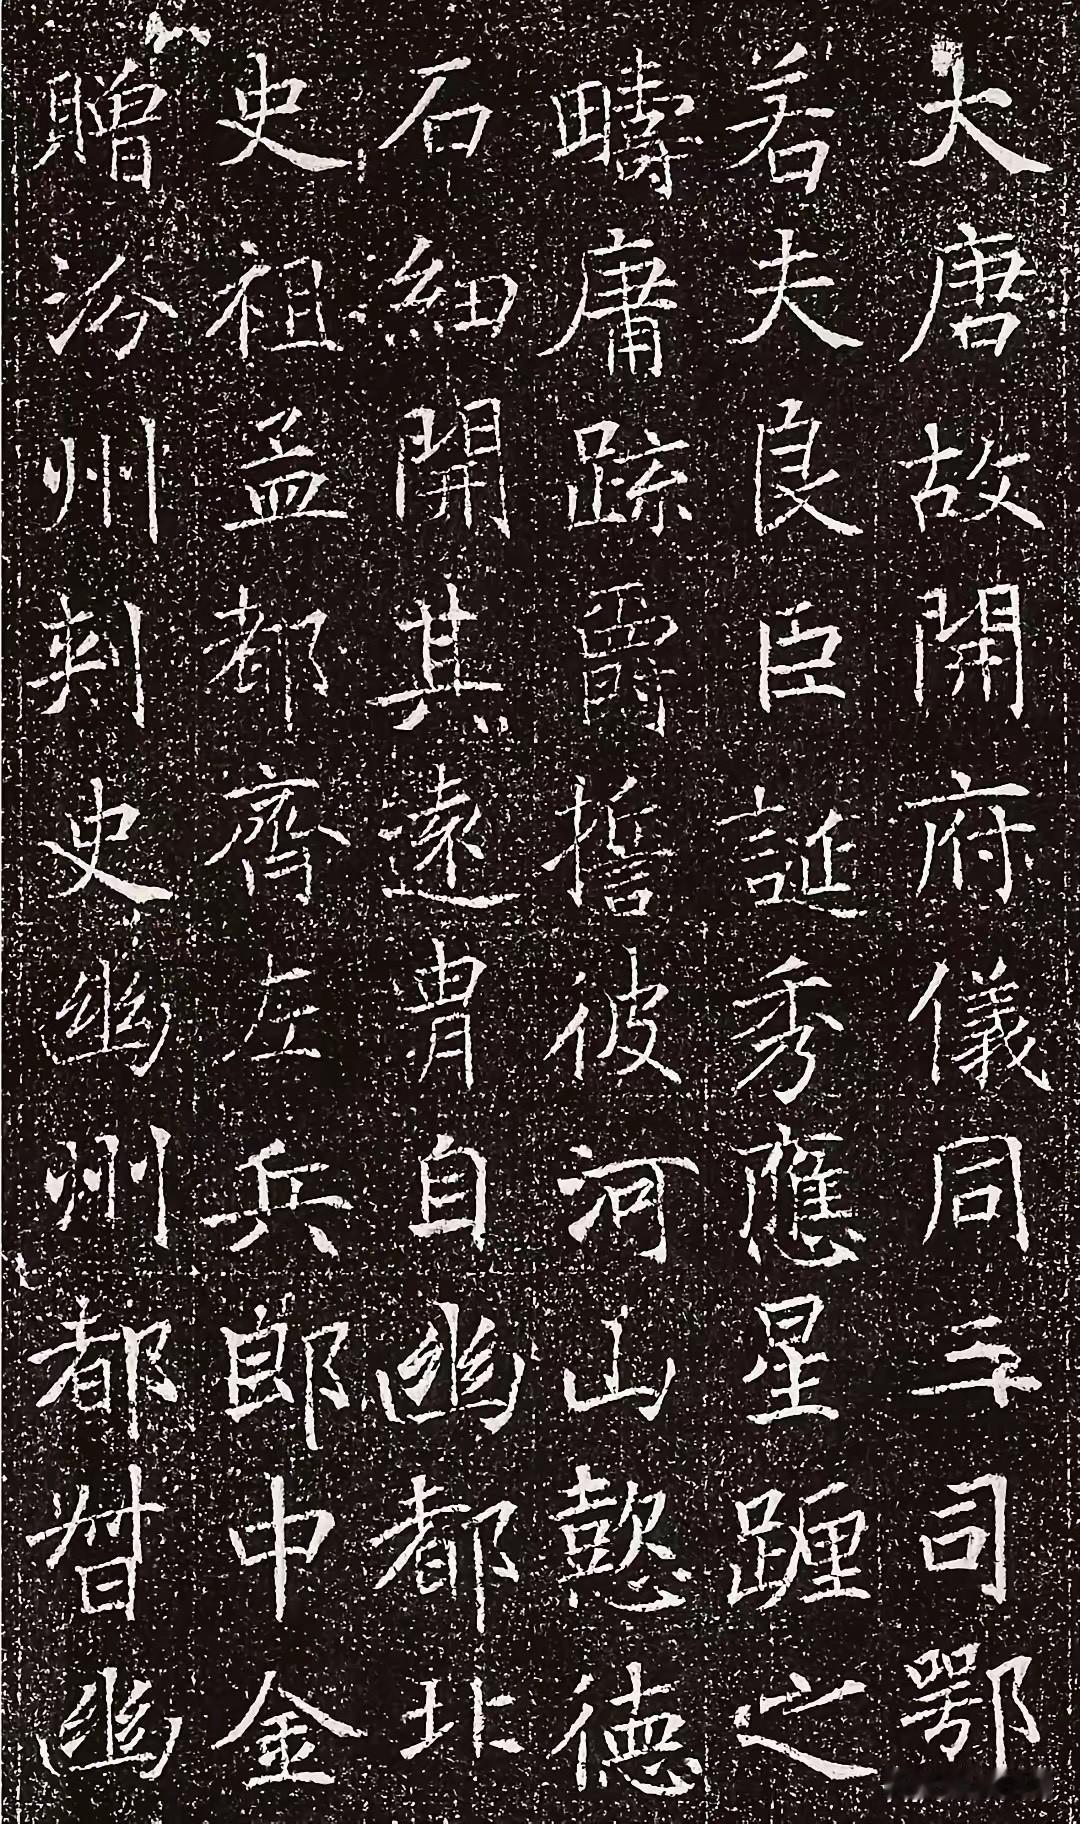 大唐故開府儀同三司鄂
若夫良臣誕秀應星躔之
疇庸踈爵誓彼河山懿德
石紐開其遠胄自幽都北
史祖孟都齊左兵郎中金
贈汾州刺史幽州都督幽